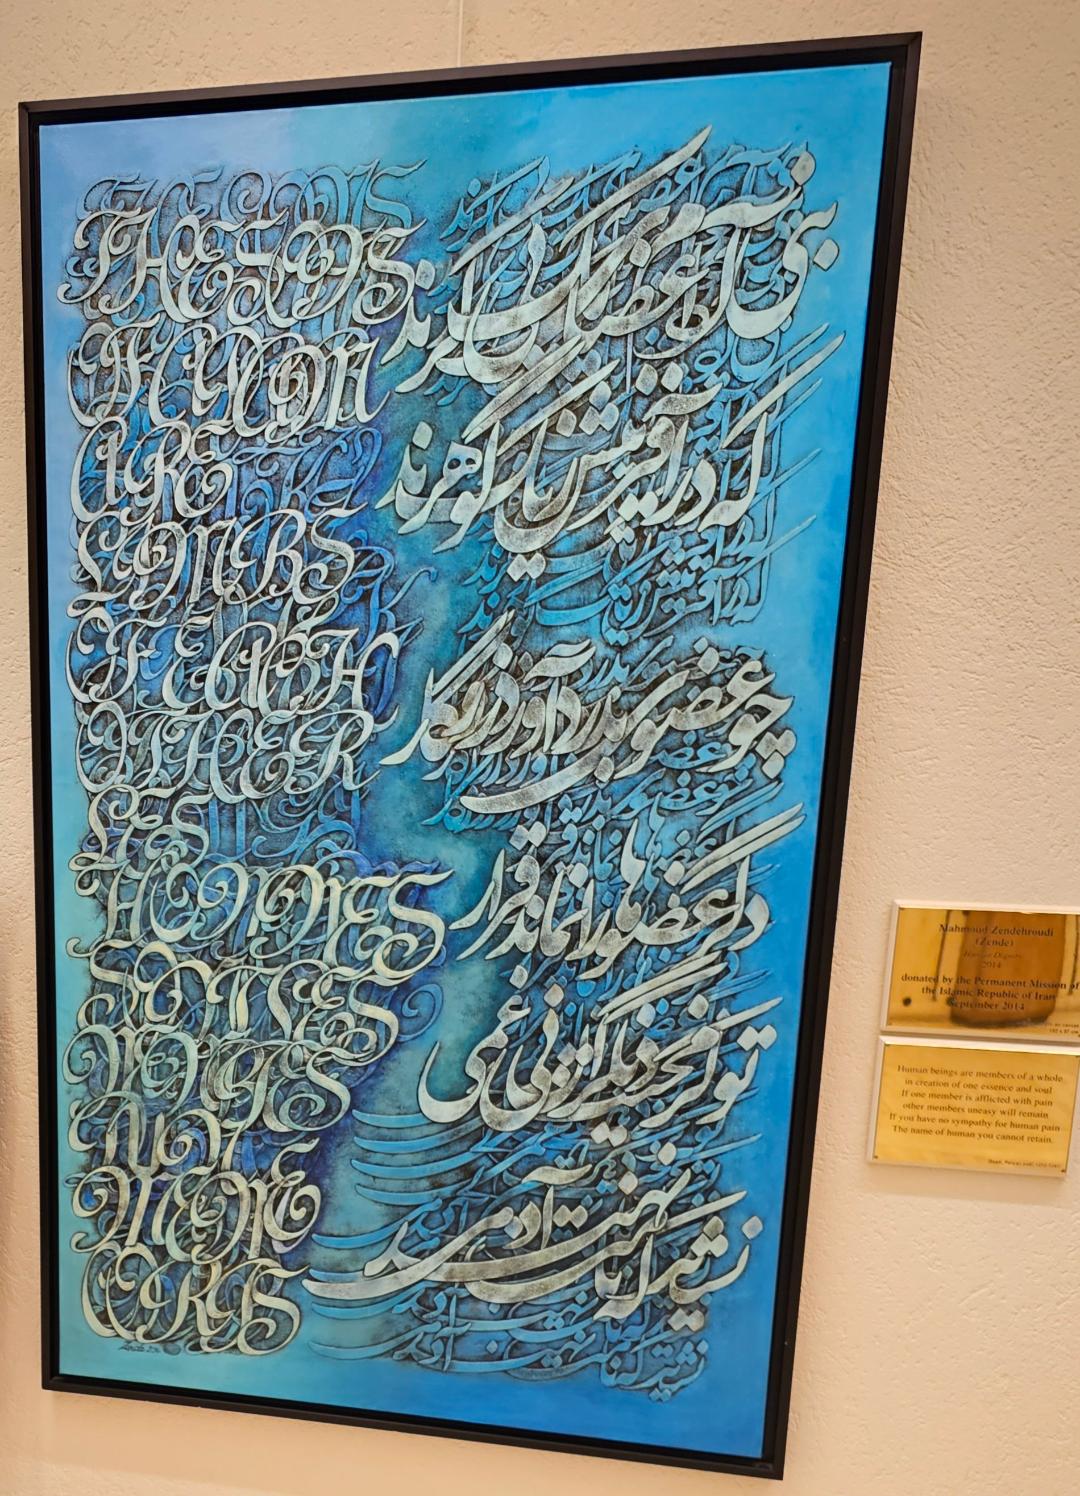 THE SONS
ARE
LIMBS
OF EACH
OTHER
LES
HOMMES
MEME
بنی آدم اعضای یک پیکرند
که در آفرینش ز یک گوهرند
چو عضوی بدرد آورد روزگار
دگر عضوها را نماند قرار
تو کز محنت دیگران بی غمی
نشاید که نامت نهند آدمی
Mahmoud Zendehroudi
(Zende)
Human Dignity
2014
donated by the Permanent Mission of
the Islamic Republic of Iran
September 2014
Human beings are members of a whole
in creation of one essence and soul
If one member is afflicted with pain
other members uneasy will remain
If you have no sympathy for human pain
The name of human you cannot retain.